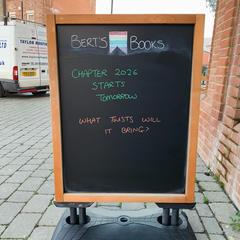 TAYLOR
LTD
BERT'S BOOKS
CHAPTER 2026
STARTS
TOMORROW
WHAT TWISTS WILL
IT BRING?